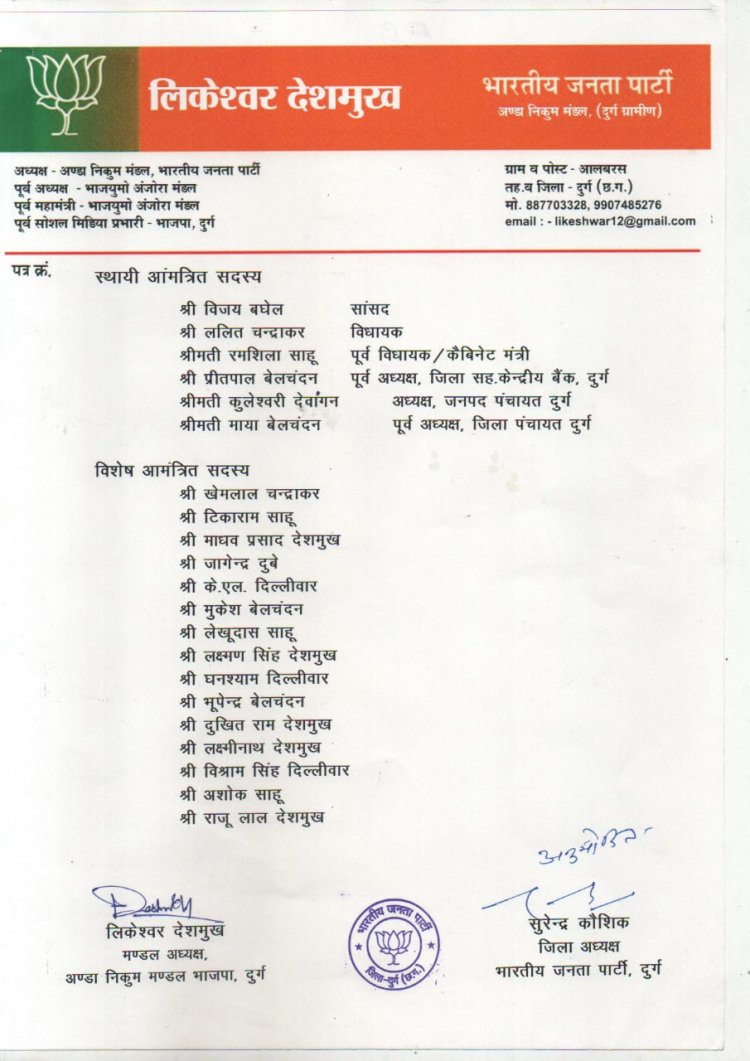 लिकेश्वर देशमुख
भारतीय जनता पार्टी
अण्डा निकुम मंडल, (दुर्ग ग्रामीण)
अध्यक्ष - अण्डा निकुम मंडल, भारतीय जनता पार्टी
पूर्व अध्यक्ष - भाजयुमो अंजोरा मंडल
पूर्व महामंत्री - भाजयुमो अंजोरा मंडल
पूर्व सोशल मिडिया प्रभारी - भाजपा, दुर्ग
ग्राम व पोस्ट - आलबरस
तह.व जिला - दुर्ग (छ.ग.)
मो. 887703328, 9907485276
email : - likeshwar12@gmail.com
पत्र क्रं.
स्थायी आंमत्रित सदस्य
श्री विजय बघेल सांसद
श्री ललित चन्द्राकर विधायक
श्रीमती रमशिला साहू पूर्व विधायक/कैबिनेट मंत्री
श्री प्रीतपाल बेलचंदन पूर्व अध्यक्ष, जिला सह.केन्द्रीय बैंक, दुर्ग
श्रीमती कुलेश्वरी देवांगन अध्यक्ष, जनपद पंचायत दुर्ग
श्रीमती माया बेलचंदन पूर्व अध्यक्ष, जिला पंचायत दुर्ग
विशेष आमंत्रित सदस्य
श्री खेमलाल चन्द्राकर
श्री टिकाराम साहू
श्री माधव प्रसाद देशमुख
श्री जागेन्द्र दुबे
श्री के.एल. दिल्लीवार
श्री मुकेश बेलचंदन
श्री लेखूदास साहू
श्री लक्ष्मण सिंह देशमुख
श्री घनश्याम दिल्लीवार
श्री भूपेन्द्र बेलचंदन
श्री दुखित राम देशमुख
श्री लक्ष्मीनाथ देशमुख
श्री विश्राम सिंह दिल्लीवार
श्री अशोक साहू
श्री राजू लाल देशमुख
अनुमोदित
लिकेश्वर देशमुख
मण्डल अध्यक्ष,
अण्डा निकुम मण्डल भाजपा, दुर्ग
भारतीय जनता पार्टी
जिला-दुर्ग (छ.ग.)
सुरेन्द्र कौशिक
जिला अध्यक्ष
भारतीय जनता पार्टी, दुर्ग